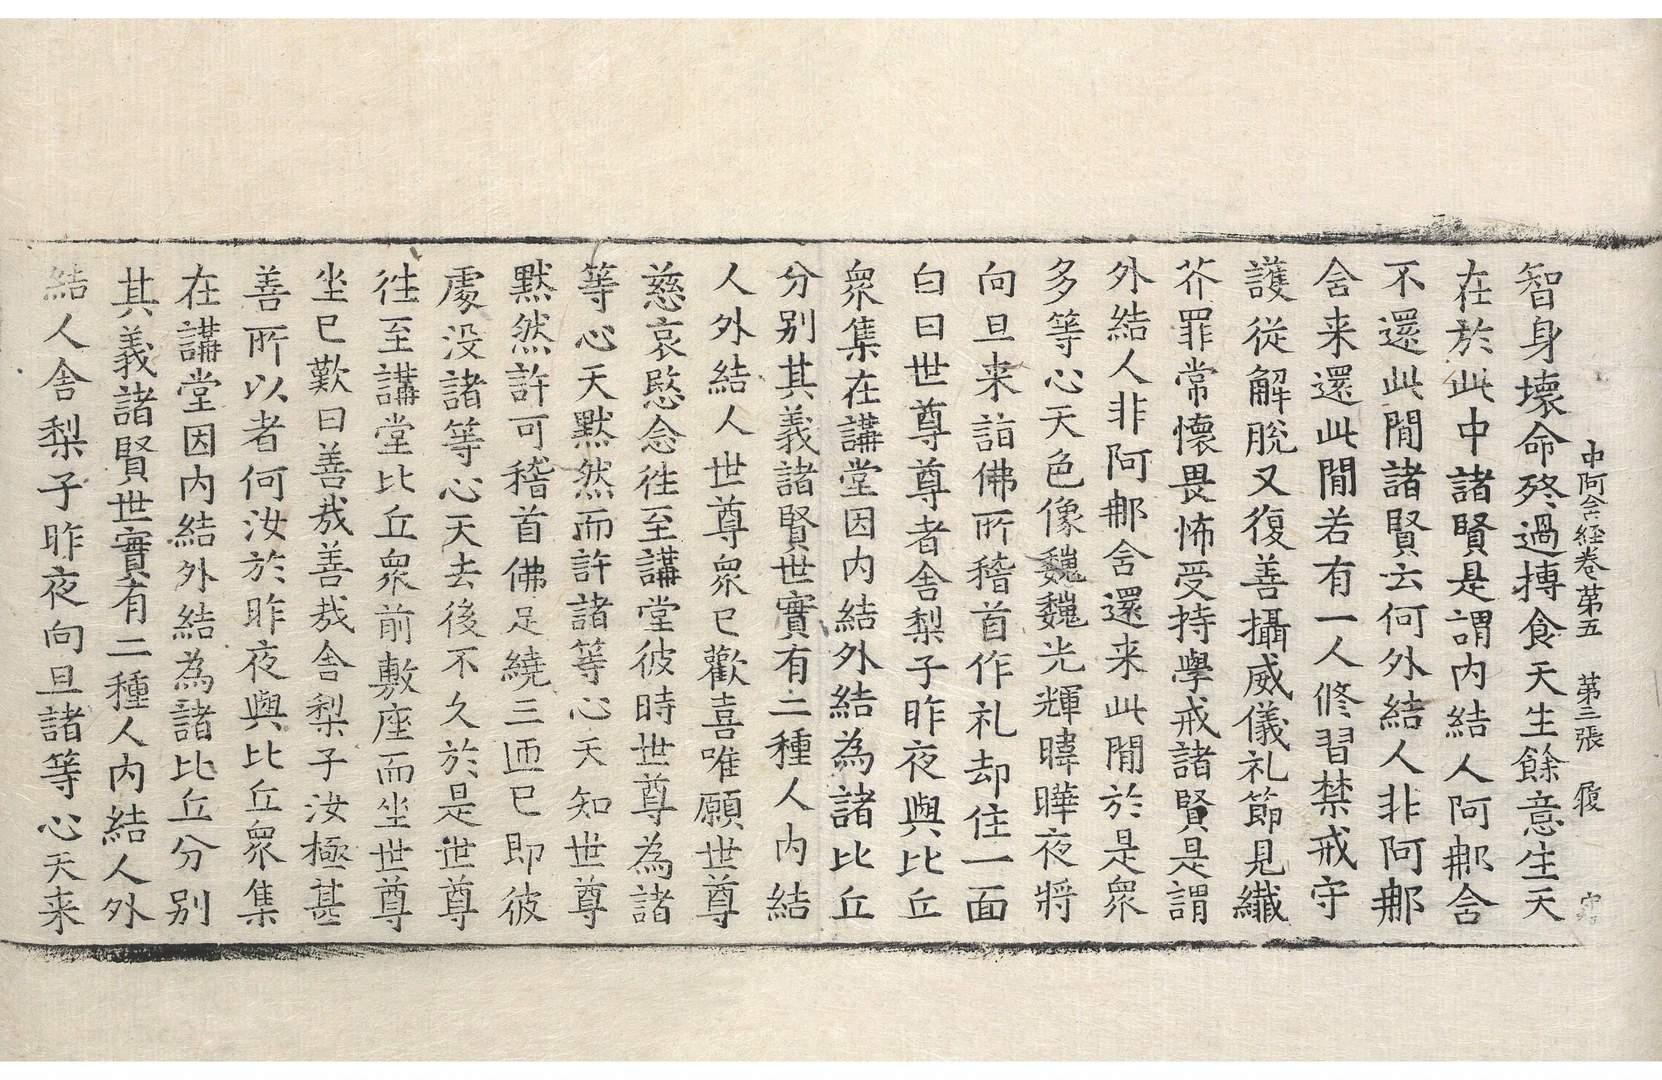 中阿含経卷第五　第三張　履
智身壞命終過摶食天生餘意生天
在於此中諸賢是謂内結人阿那含
不還此閒諸賢云何外結人非阿那
含来還此閒若有一人修習禁戒守
護從解脫又復善攝威儀礼節見纖
芥罪常懷畏怖受持學戒諸賢是謂
外結人非阿那含還来此閒於是衆
多等心天色像巍巍光輝暐曄夜將
向旦来詣佛所稽首作礼却住一面
白曰世尊尊者舎梨子昨夜與比丘
衆集在講堂因内結外結為諸比丘
分别其義諸賢世實有二種人内結
人外結人世尊衆已歡喜唯願世尊
慈哀愍念徃至講堂彼時世尊為諸
等心天默然而許諸等心天知世尊
默然許可稽首佛足繞三匝已即彼
處没諸等心天去後不久於是世尊
徃至講堂比丘衆前敷座而坐世尊
坐已歎曰善哉善哉舎梨子汝極甚
善所以者何汝於昨夜與比丘衆集
在講堂因内結外結為諸比丘分别
其義諸賢世實有二種人内結人外
結人舎梨子昨夜向旦諸等心天来